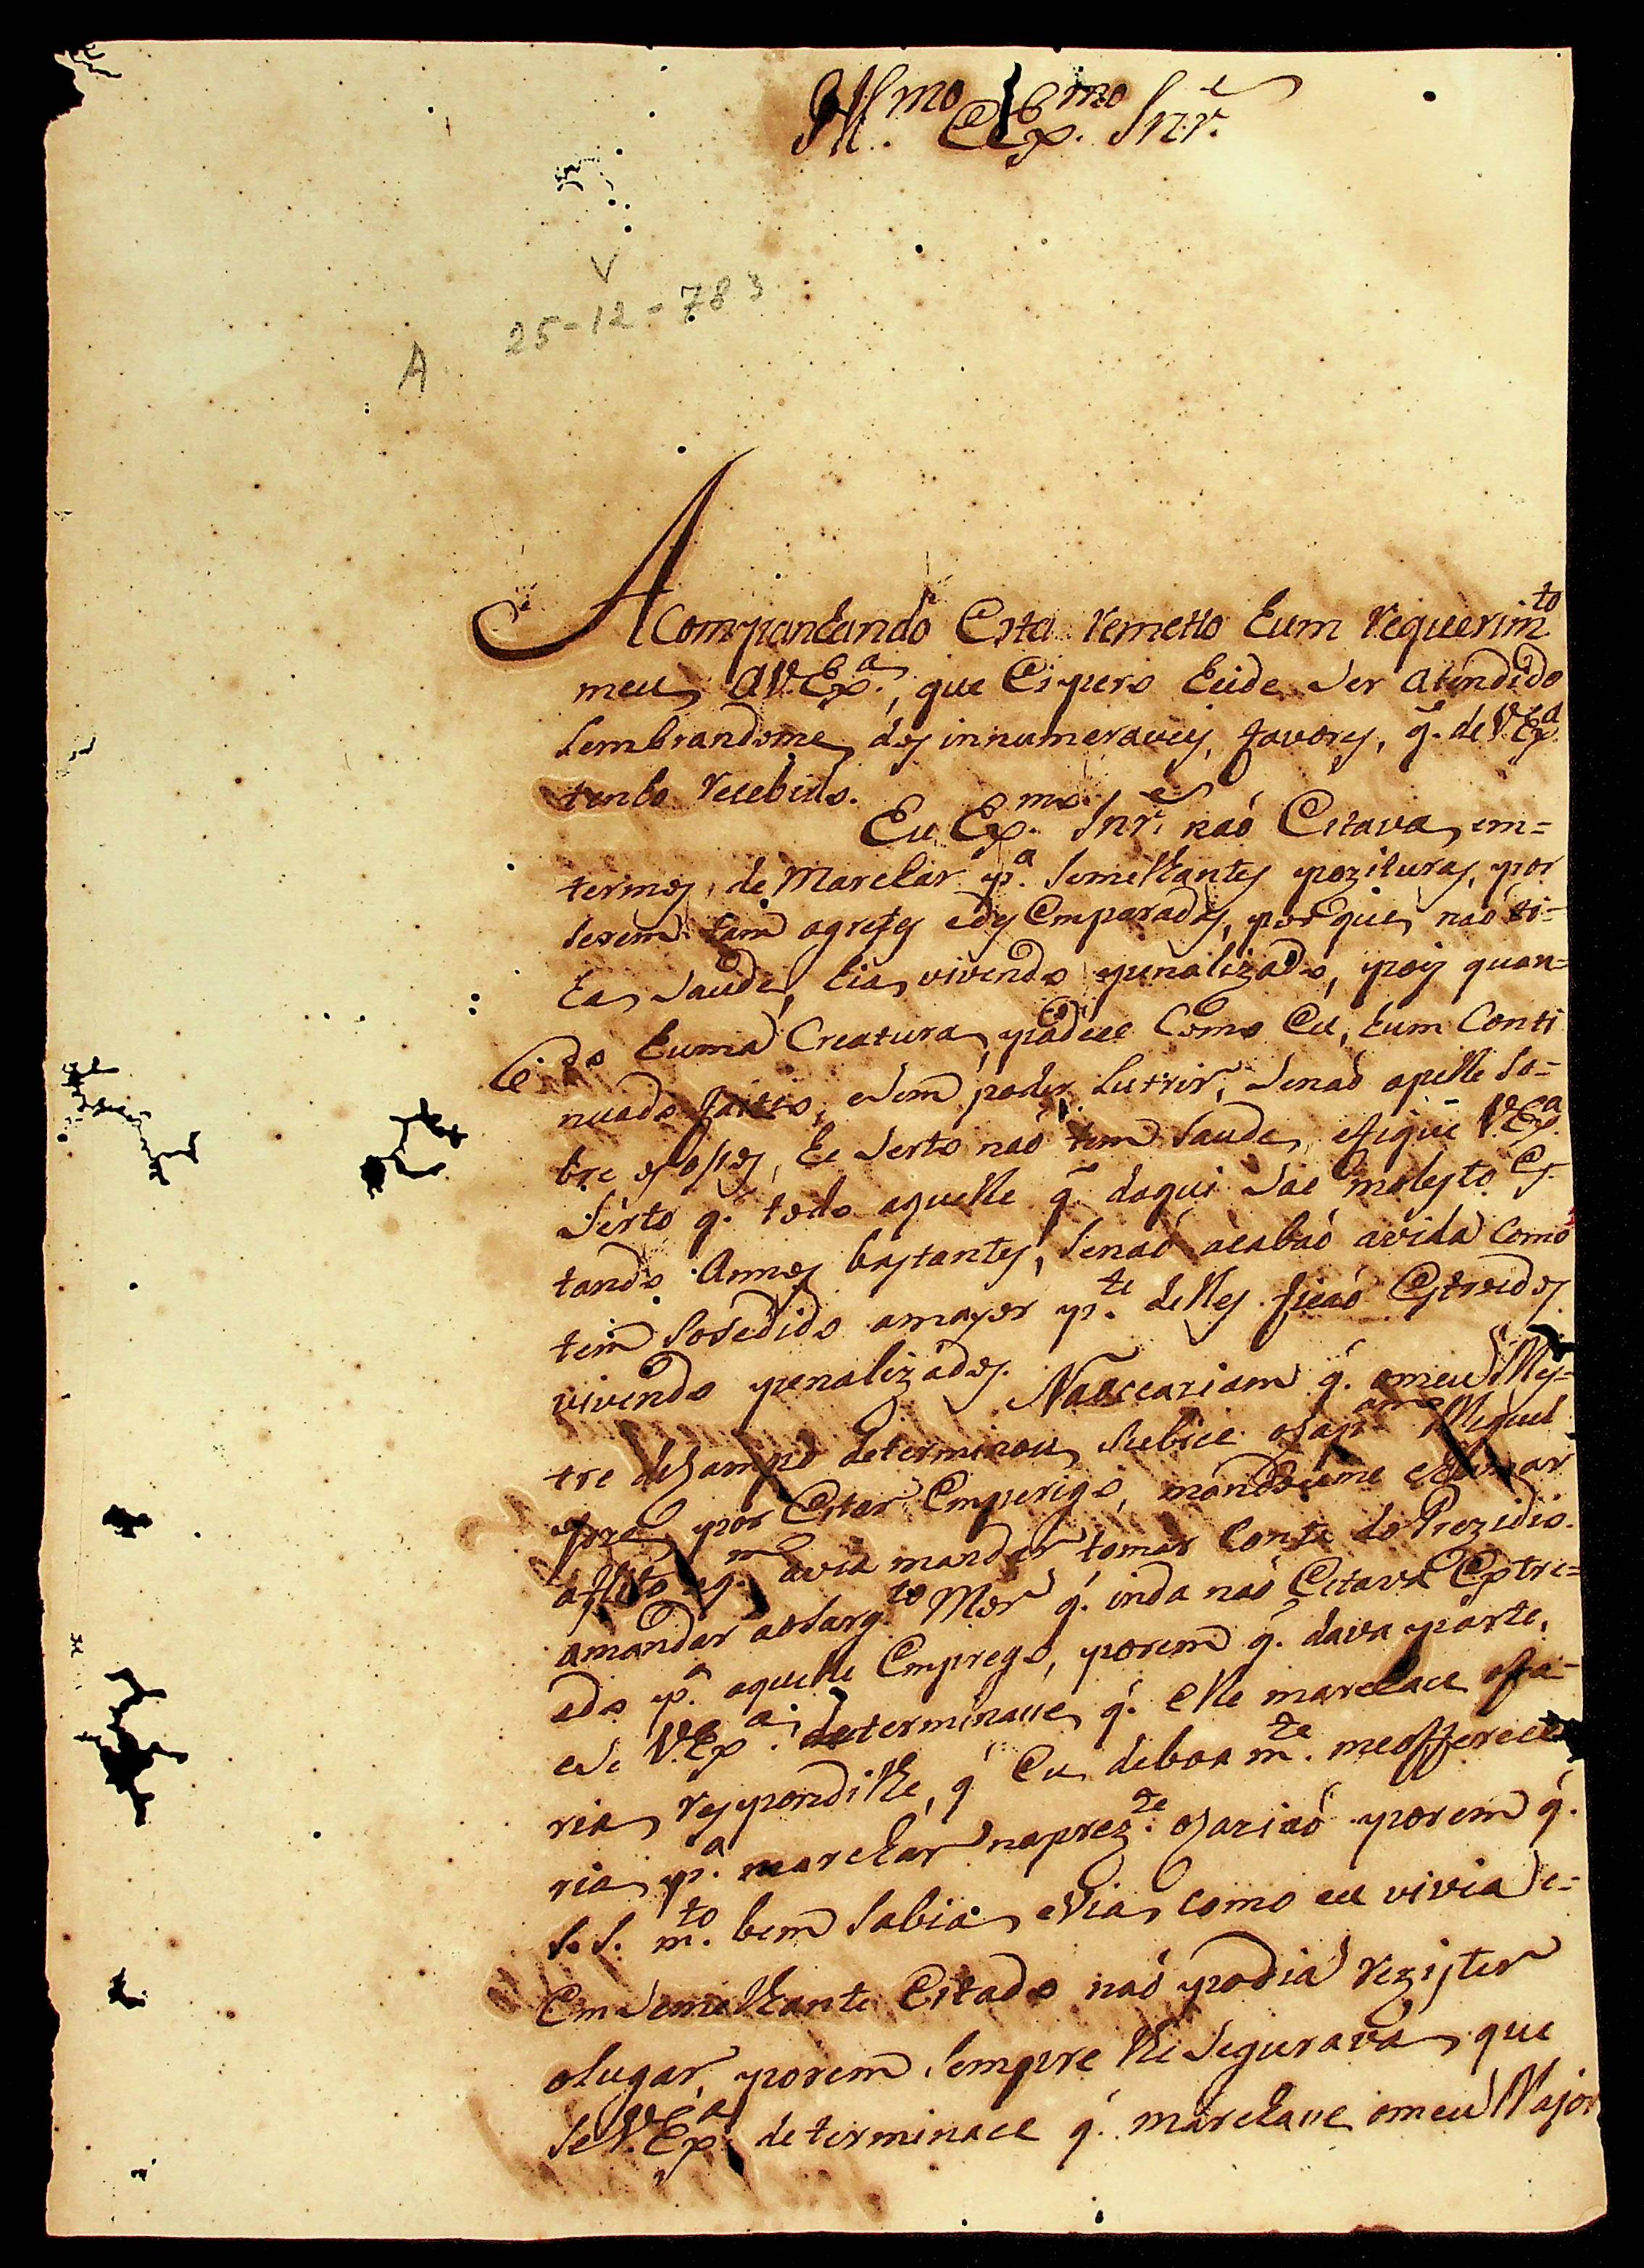 Ill.mo e Ex.mo Snr.
V
25-12-783
A
AComponhando Esta remetto hum requerim.to
meu, a V.Ex.a, que Espero hei de Ser atindido
Lembrandome, dos innumeraveis, favores, q. de V.Ex.a
tenho recebido.
Eu Ex.mo Snr. naó Estava, em=
termos, de Marchar p.a Semelhantes pozituras, por
serem tam agrestes e des Emparados, porque, naó ti=
ha, Saude, hia, vivendo penalizado, pois quan=
do huma Creatura, padece Como Eu, hum Conti
nuado, e Sem poder Sutrir, Senaó apelle So=
bre os osos, he Serto naó tem Saude, e fique V.Ex.a
Serto q. todo aquelle q. daqui Sae molesto Es
tando Annos bastantes, Senaó acabaó a vida Como
tem Sosedido a mayor p.te delles ficaó Estroidos
vivendo penalizados.
q. o meu Mes=
tre de Campo determinou, Miguel
por Estar Emperigo, mandoume Chamar
aflito avia mandar tomar Conta do Prezidio.
amandar ao Sarg.to Mor q. inda naó Estava Extre=
edo p.a aquelle Emprego, porem q. dava parte,
e Se V.Ex.a determinace, q. elle marchace
ria, respondilhe, q. Eu deboa m.te meofferece
ria, p.a marchar naprez.te ozaziaó porem q.
S. S. m.to bem Sabia, e Via, como eu vivia e=
Em Semelhante Estado naó podia rezister
olugar, porem Sempre lhe Segurava, que
Se V.Ex.a determinace q. marchace o meu Major